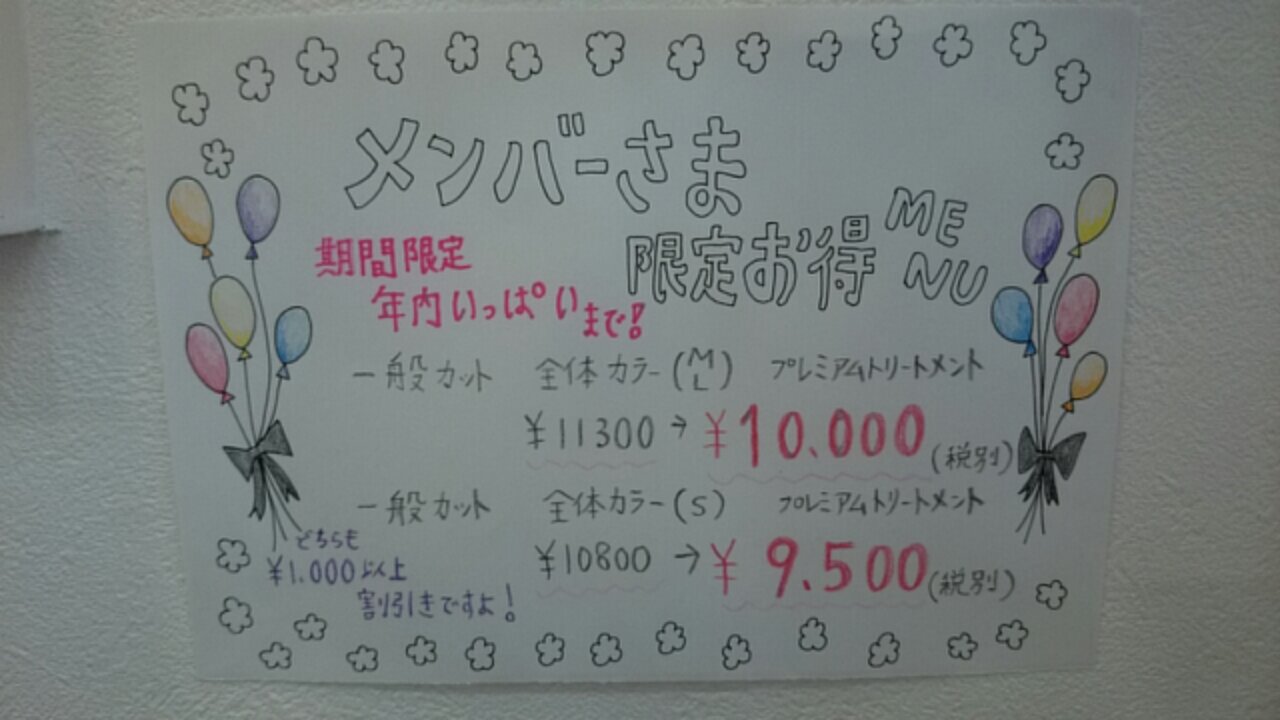 メンバーさま
限定お得 MENU
期間限定
年内いっぱいまで!
一般カット 全体カラー(M L) プレミアムトリートメント
¥11300 → ¥10.000(税別)
一般カット 全体カラー(S) プレミアムトリートメント
¥10800 → ¥9.500(税別)
どちらも
¥1.000以上
割引きですよ!